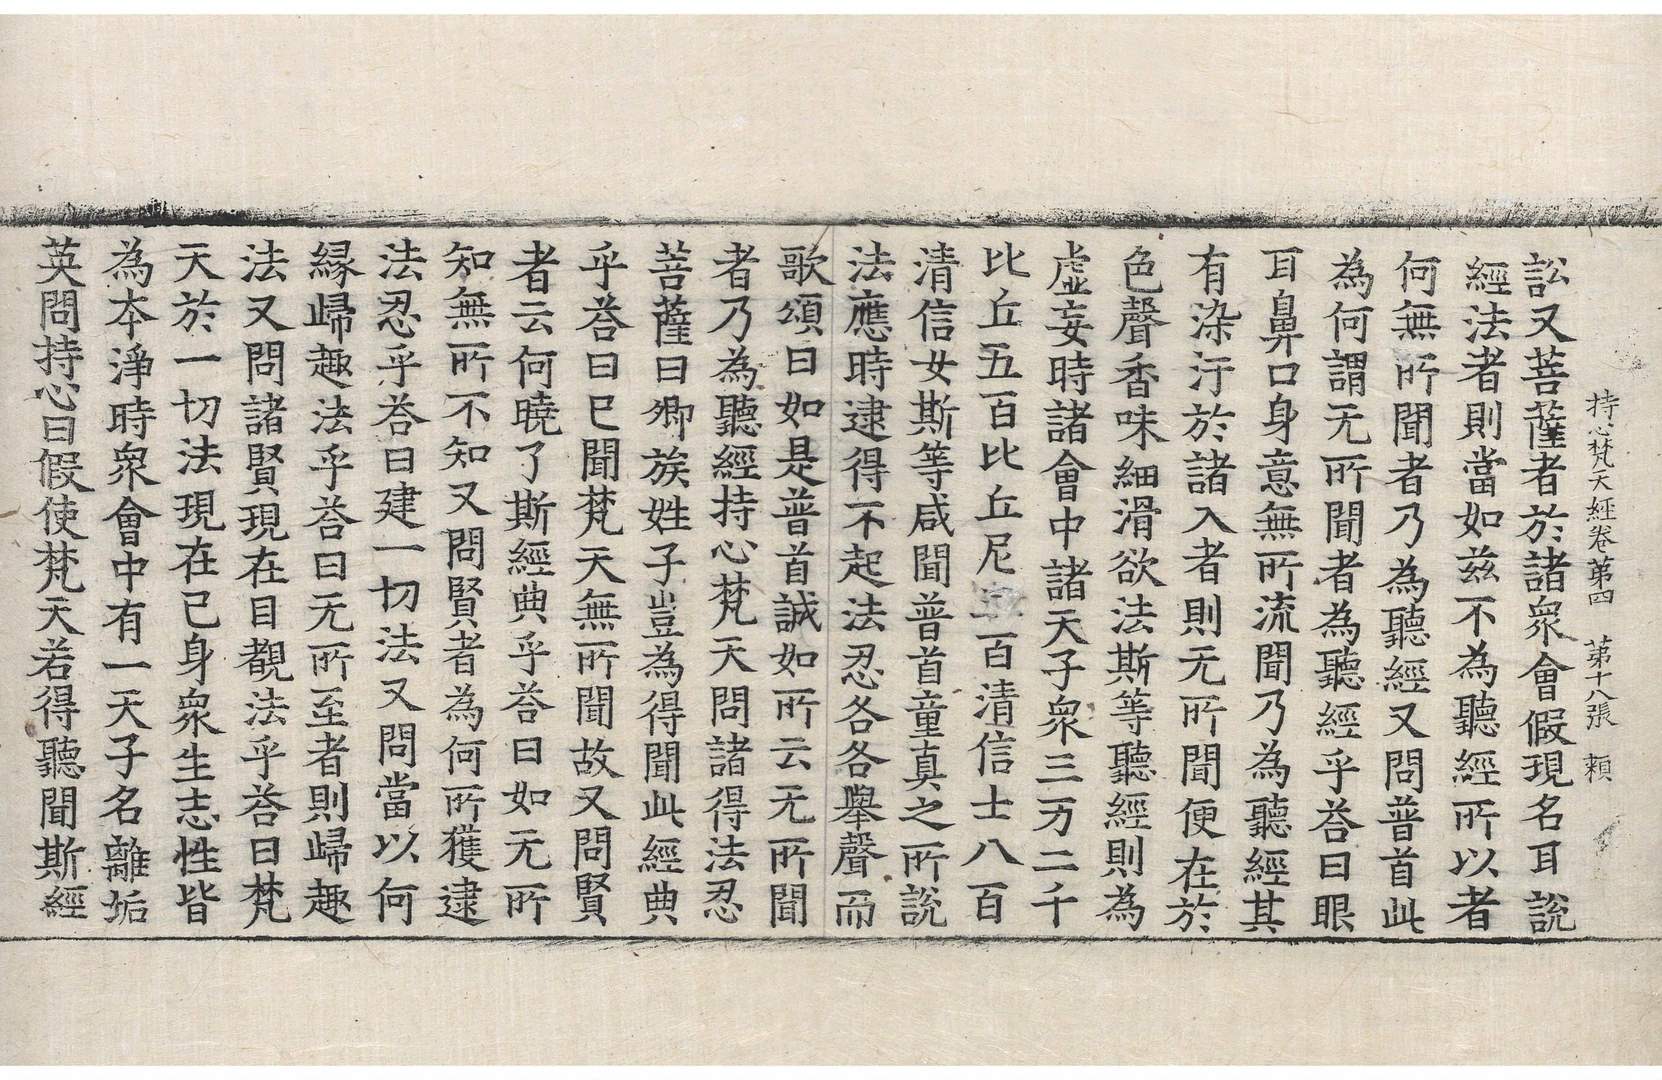 持心梵天經卷第四　第十八張　賴
訟又菩薩者於諸衆會假現名耳說
經法者則當如兹不為聽經所以者
何無所聞者乃為聽經又問普首此
為何謂无所聞者為聽經乎荅曰眼
耳鼻口身意無所流聞乃為聽經其
有染汙於諸入者則无所聞便在於
色聲香味細滑欲法斯等聽經則為
虛妄時諸會中諸天子衆三万二千
比丘五百比丘尼百清信士八百
清信女斯等咸聞普首童真之所說
法應時逮得不起法忍各各舉聲而
歌頌曰如是普首誠如所云无所聞
者乃為聽經持心梵天問諸得法忍
菩薩曰卿族姓子豈為得聞此經典
乎荅曰已聞梵天無所聞故又問賢
者云何曉了斯經典乎荅曰如无所
知無所不知又問賢者為何所獲逮
法忍乎荅曰建一切法又問當以何
緣歸趣法乎荅曰无所至者則歸趣
法又問諸賢現在目覩法乎荅曰梵
天於一切法現在己身衆生志性皆
為本淨時衆會中有一天子名離垢
英問持心曰假使梵天若得聽聞斯經